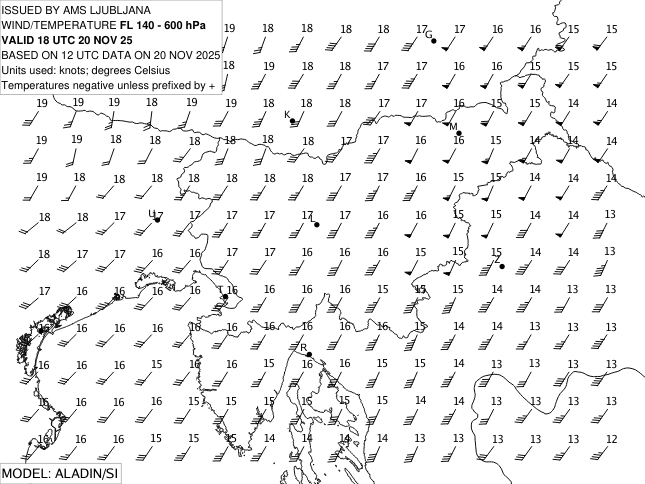 ISSUED BY AMS LJUBLJANA
WIND/TEMPERATURE FL 140 - 600 hPa
VALID 18 UTC 20 NOV 25
BASED ON 12 UTC DATA ON 20 NOV 2025
Units used: knots; degrees Celsius
Temperatures negative unless prefixed by +
19 18 18 18 18 17 17 16 16 15 15
G
18 19 18 18 18 17 17 16 15 15 15
19 19 19 18 19 19 18 18 18 17 17 16 15 15 14 14
K
M
19 19 18 18 18 18 18 18 17 17 16 16 15 14 14 14
19 18 18 18 18 18 18 18 17 16 16 15 15 14 14 14
18 18 17 17 17 17 17 17 17 16 16 15 15 14 14 13
U
L
18 17 17 16 16 17 17 16 16 16 15 15 15 14 14 13
Z
17 16 16 16 16 16 16 16 16 15 15 15 14 14 13 13
T
16 16 16 16 16 16 16 16 16 16 15 14 14 13 13 13
R
16 16 16 15 16 15 16 16 15 15 14 13 13 13 13 13
16 16 16 16 16 15 15 15 15 14 14 13 13 13 13 13
16 16 16 15 15 15 14 14 14 14 13 13 13 13 13 12
MODEL: ALADIN/SI